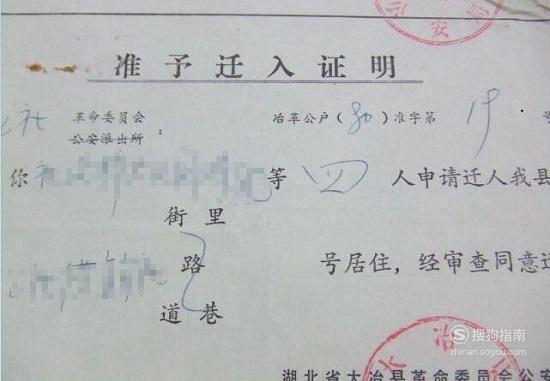 公安
准予迁入证明
社 革命委员会 冶革公户（80）准字第19号
公安派出所：
你社 等四人申请迁入我县
街里
路 号居住，经审查同意迁
道巷
大冶
搜狗指南
zhinan.sogou.com
湖北省大冶县革命委员会公安